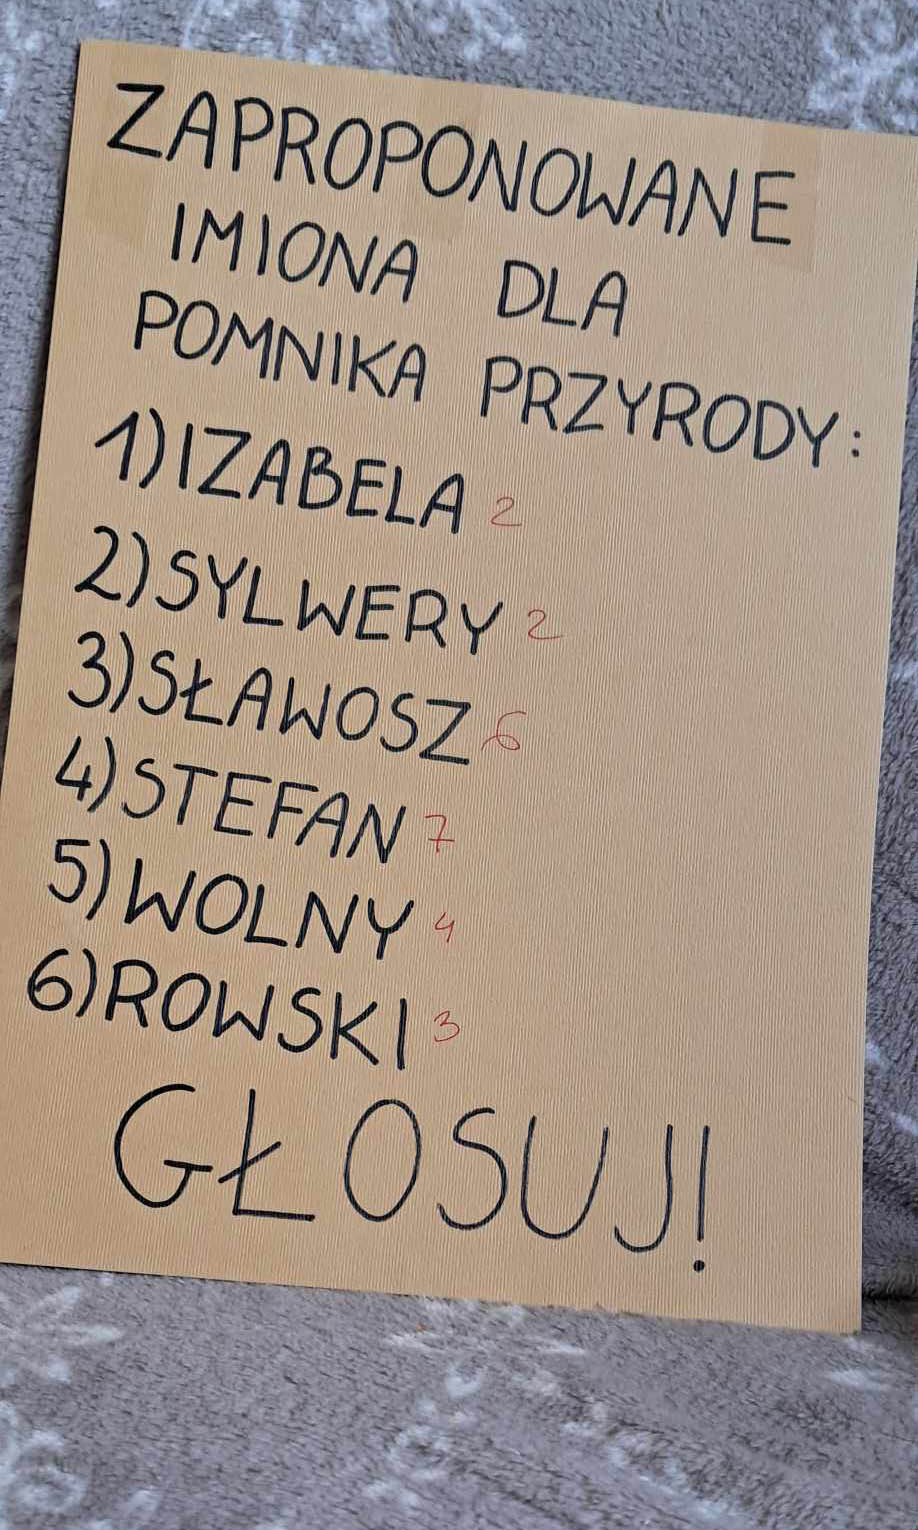 ZAPROPONOWANE
IMIONA DLA
POMNIKA PRZYRODY:
1) IZABELA 2
2) SYLWERY 2
3) SŁAWOSZ 6
4) STEFAN 7
5) WOLNY 4
6) ROWSKI 3
GŁOSUJ!